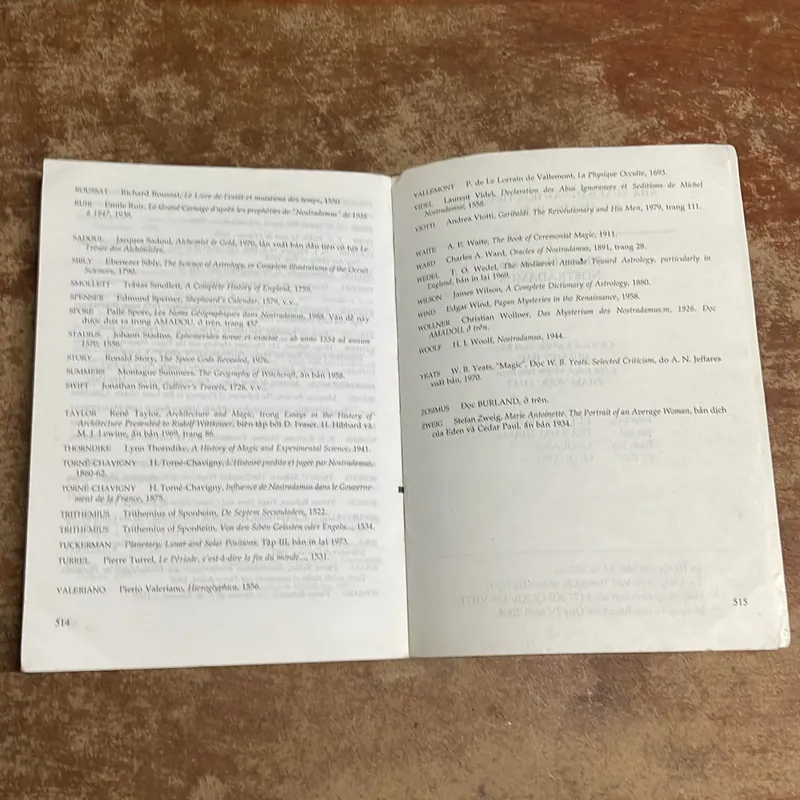 ROUSSAT Richard Roussat, Le Livre de l'estât et mutations des temps, 1550.
RUIR Emile Ruir, Le Grand Carnage d'après les prophéties de "Nostradamus" de 1938
à 1947, 1938.
SADOUL Jacques Sadoul, Alchemist & Gold, 1970, lần xuất bản đầu tiên có tựa Le
Trésor des Alchimistes.
SIBLY Ebenezer Sibly, The Science of Astrology, or Complete Illustrations of the Occult
Sciences, 1790.
SMOLLETT Tobias Smollett, A Complete History of England, 1759.
SPENSER Edmund Spenser, Shepheard's Calendar, 1579, v.v...
SPORE Palle Spore, Les Noms Géographiques dans Nostradamus, 1988. Vấn đề này
được đưa ra trong AMADOU, ở trên, trang 457.
STADIUS Johann Stadius, Ephemerides novae et exactae ... ab anno 1554 ad annum
1570, 1556.
STORY Ronald Story, The Space Gods Revealed, 1976.
SUMMERS Montague Summers, The Geography of Witchcraft, ấn bản 1958.
SWIFT Jonathan Swift, Gulliver's Travels, 1726, v.v...
TAYLOR René Taylor, Architecture and Magic, trong Essays in the History of
Architecture Presented to Rudolf Wittkower, biên tập bởi D. Fraser, H. Hibbard và
M. J. Lewine, ấn bản 1969, trang 86.
THORNDIKE Lynn Thorndike, A History of Magic and Experimental Science, 1941.
TORNÉ-CHAVIGNY H. Torné-Chavigny, L'Histoire prédite et jugée par Nostradamus,
1860-62.
TORNÉ-CHAVIGNY H. Torné-Chavigny, Influence de Nostradamus dans le Gouverne-
ment de la France, 1875.
TRITHEMIUS Trithemius of Sponheim, De Septem Secundadeis, 1522.
TRITHEMIUS Trithemius of Sponheim, Von den Siben Geisten oder Engeln..., 1534.
TUCKERMAN Planetary, Lunar and Solar Positions, Tập III, bản in lại 1973.
TURREL Pierre Turrel, Le Période, c'est-à-dire la fin du monde..., 1531.
VALERIANO Pierio Valeriano, Hieroglyphica, 1556.
514
VALLEMONT P. de Le Lorrain de Vallemont, La Physique Occulte, 1693.
VIDEL Laurent Videl, Declaration des Abus Ignorances et Seditions de Michel
Nostradamus, 1558.
VIOTTI Andrea Viotti, Garibaldi. The Revolutionary and His Men, 1979, trang 111.
WAITE A. E. Waite, The Book of Ceremonial Magic, 1911.
WARD Charles A. Ward, Oracles of Nostradamus, 1891, trang 28.
WEDEL T. O. Wedel, The Mediaevel Attitude Toward Astrology, particularly in
England, bản in lại 1969.
WILSON James Wilson, A Complete Dictionary of Astrology, 1880.
WIND Edgar Wind, Pagan Mysteries in the Renaissance, 1958.
WÖLLNER Christian Wollner, Das Mysterium des Nostradamus,m, 1926. Đọc
AMADOU, ở trên.
WOOLF H. I. Woolf, Nostradamus, 1944.
YEATS W. B. Yeats, "Magic". Đọc W. B. Yeats. Selected Criticism, do A. N. Jeffares
xuất bản, 1970.
ZOSIMUS Đọc BURLAND, ở trên.
ZWEIG Stefan Zweig, Marie Antoinette, The Portrait of an Average Woman, bản dịch
của Eden và Cedar Paul, ấn bản 1934.
515